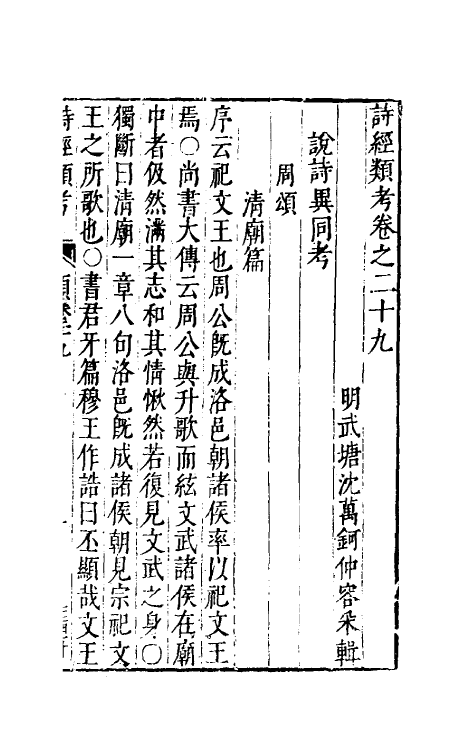 詩經類考卷之二十九
明武塘沈萬鈳仲容采輯
說詩異同考
周頌
清廟篇
序云祀文王也周公旣成洛邑朝諸侯率以祀文王
焉〇尚書大傳云周公與升歌而絃文武諸侯在廟
中者伋然淵其志和其情愀然若復見文武之身〇
獨斷曰清廟一章八句洛邑旣成諸侯朝見宗祀文
王之所歌也〇書君牙篇穆王作誥曰丕顯哉文王
詩經類考